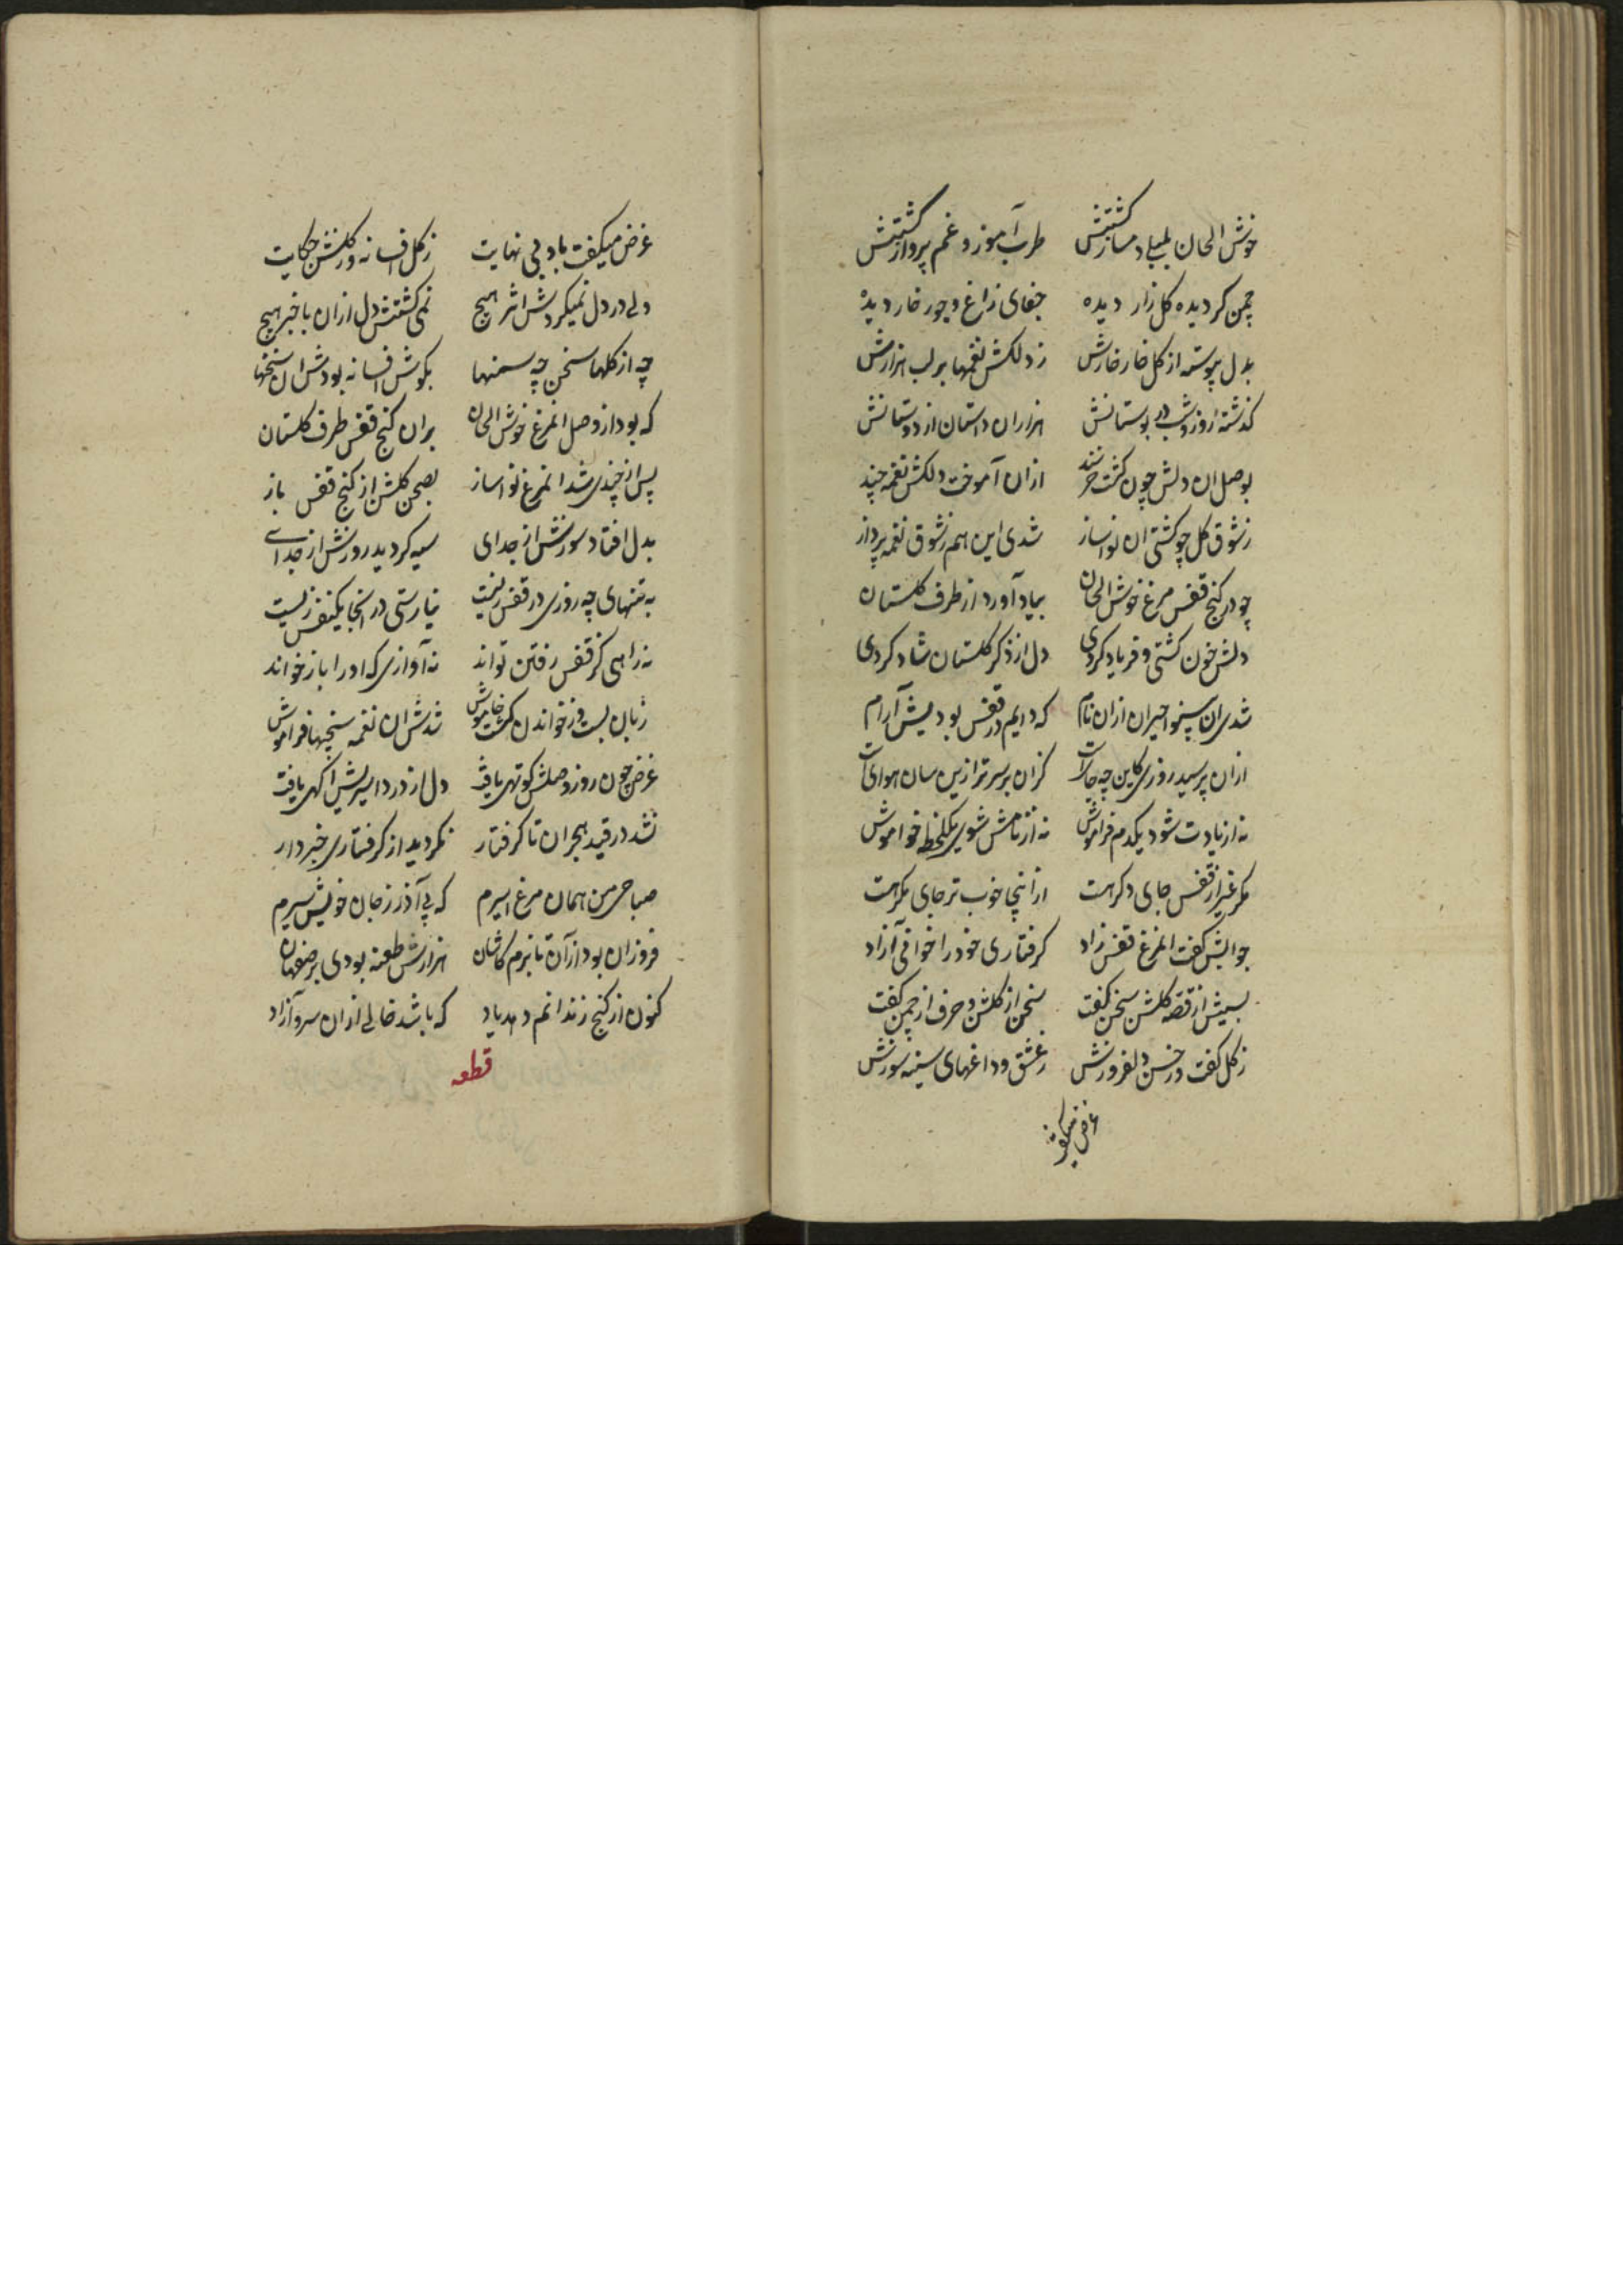 خوش الحان بلبلی دمساز کشتیش طرب آموز و غم پرداز کشتیش
چمن کردیده کل زار دیده جفای زاغ و جور خار دیده
بدل پیوسته از کل خار خارش ز دلکش نغمها بر لب هزارش
کذشته روز و شب در بوستانش هزاران داستان از دوستانش
بوصل ان دلش چون کشت خرسند ازان آموخت دلکش نغمه چند
ز شوق کل چو کشتی ان نواساز شدی این هم ز شوق نغمه پرداز
چو در کنج قفس مرغ خوش الحان بیاد آورد از طرف کلستان
دلش خون کشتی و فریاد کردی دل از ذکر کلستان شاد کردی
شدی ان بینوا حیران ازان نام که دایم در قفس بودیش آرام
ازان پرسید روزی کاین چه حالات کزان بر سر ترا زین سان هوای ات
نه از یادت شود یکدم فراموش نه از نامش شوی یکلحظه خواموش
مکر غیر از قفس جای دکر هست ازاینجا خوب تر جای مکر هست
جوابش کفت انمرغ قفس زاد کرفتاری خود را خوانی آزاد
بسیش از قصه کلشن سخن کفت سخن از کلشن و حرف از چمن کفت
ز کل کفت و ز حسن دلفروزش ز عشق و داغهای سینه سوزش
غرض میکفت
غرض میکفت با وی بی نهایت ز کل افسانه وز کلشن حکایت
ولی در دل نمیکردش اثر هیچ نمی کشتش دل ازان با خبر هیچ
چه از کلها سخن چه سمنها بکوش افسانه بودش ان سخنها
که بود از وصل انمرغ خوش الحان بران کنج قفس طرف کلستان
پس از چندی شد انمرغ نواساز بصحن کلشن از کنج قفس باز
بدل افتاد سوزش از جدای سیه کردید روزش از جدای
به تنهای چه روزی در قفس زیست نیارستی در انجا یکنفس زیست
نه راهی کز قفس رفتن تواند نه آوازی که او را باز خواند
زبان بست وز خواندن کشت خاموش شدش ان نغمه سنجیها فراموش
غرض چون روز وصلش کوتهی یافت دل از درد اسیریش آکهی یافت
نشد در قید هجران تا کرفتار نکردید از کرفتاری خبردار
صباحی من همان مرغ اسیرم که بی آذر ز جان خویش سیرم
فروزان بود ازآن تا بزم کاشان هزارش طعنه بودی بر صفاهان
کنون از کنج زندانم دهد یاد که باشد خالی ازان سرو آزاد
قطعه